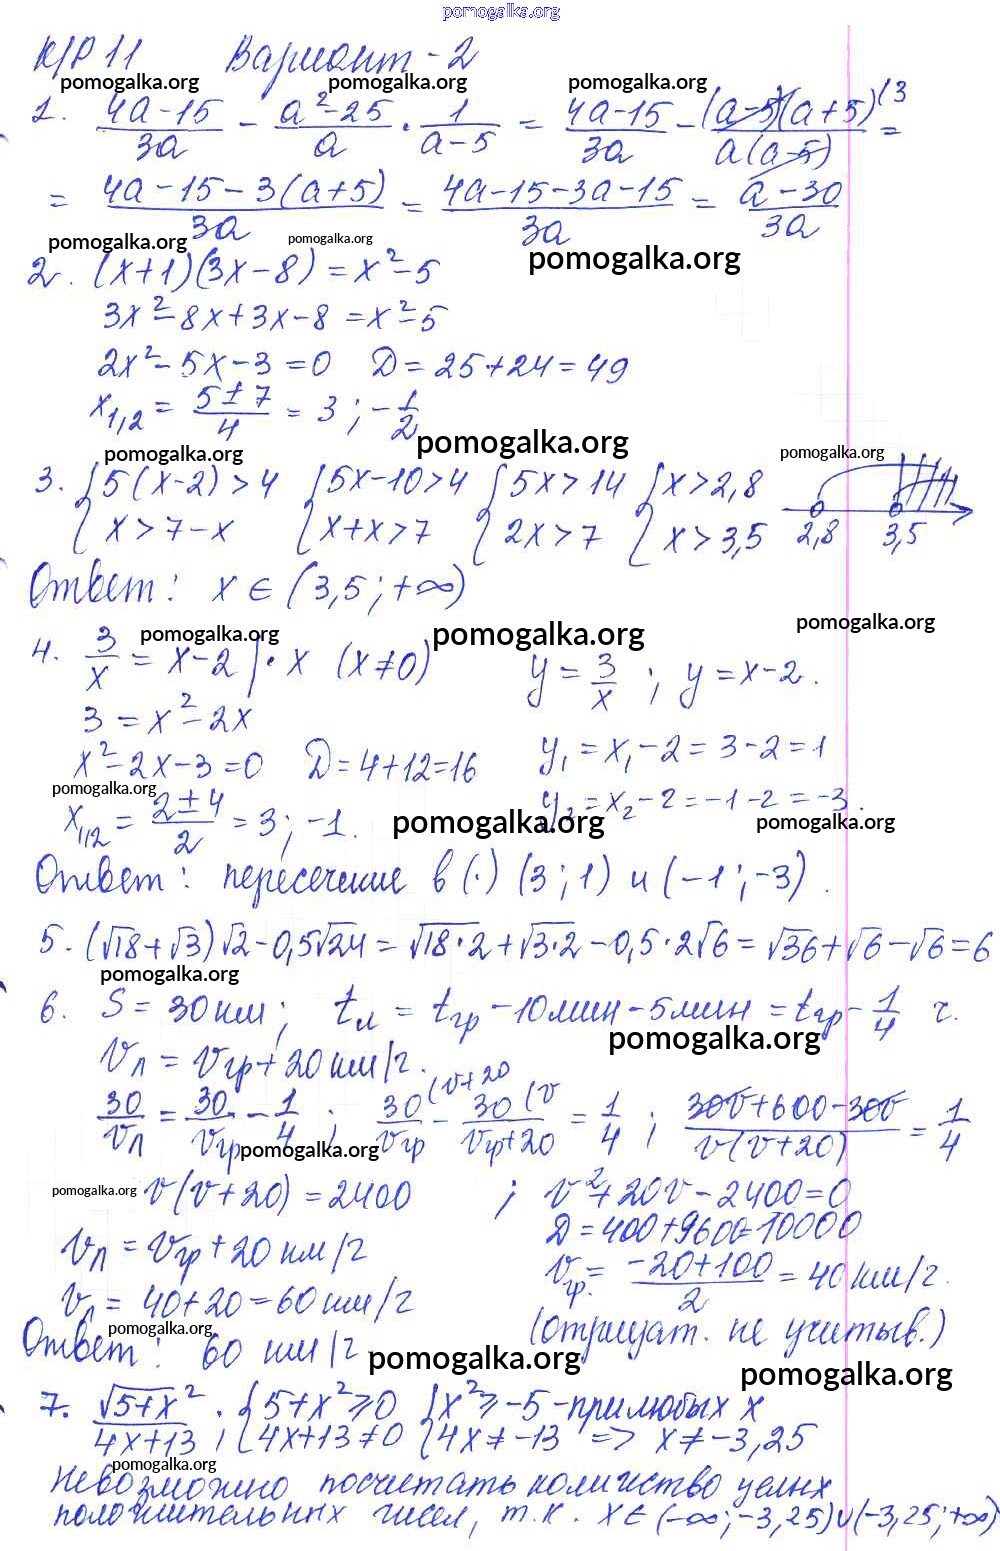 pomogalka.org
К/Р 11 Вариант - 2
pomogalka.org pomogalka.org pomogalka.org
1. (4a-15)/(3a) - (a²-25)/a · 1/(a-5) = (4a-15)/(3a) - ((a-5)(a+5)^(3)/(a(a-5)) =
= (4a-15-3(a+5))/(3a) = (4a-15-3a-15)/(3a) = (a-30)/(3a)
pomogalka.org pomogalka.org pomogalka.org
2. (x+1)(3x-8) = x²-5
3x²-8x+3x-8 = x²-5
2x²-5x-3=0 D=25+24=49
x₁,₂ = (5±7)/4 = 3; -1/2
pomogalka.org pomogalka.org pomogalka.org
3. { 5(x-2)>4 { 5x-10>4 { 5x>14 { x>2,8
{ x>7-x { x+x>7 { 2x>7 { x>3,5 2,8 3,5
Ответ: x∈(3,5; +∞)
pomogalka.org pomogalka.org pomogalka.org
4. 3/x = x-2 |·x (x≠0) y = 3/x; y = x-2.
3 = x²-2x
x²-2x-3=0 D=4+12=16 y₁=x₁-2=3-2=1
pomogalka.org
x₁,₂ = (2±4)/2 = 3; -1. y₂=x₂-2=-1-2=-3.
pomogalka.org pomogalka.org
Ответ: пересечение в (·) (3;1) и (-1;-3).
5. (√18+√3)√2-0,5√24 = √18·2+√3·2-0,5·2√6 = √36+√6-√6=6
pomogalka.org
6. S = 30 км; tл = tгр - 10 мин - 5 мин = tгр - 1/4 ч.
pomogalka.org
vл = vгр + 20 км/ч.
30/vл = 30/vгр - 1/4; 30/vгр^(v+20 - 30/(vгр+20)^(v = 1/4; (30v+600-30v)/(v(v+20)) = 1/4
pomogalka.org
pomogalka.org v(v+20) = 2400; v²+20v-2400=0
D=400+9600=10000
vл = vгр + 20 км/ч
vгр. = (-20+100)/2 = 40 км/ч.
vл = 40+20=60 км/ч
pomogalka.org (отрицат. не учитыв.)
Ответ: 60 км/ч
pomogalka.org pomogalka.org
7. √5+x²/(4x+13); { 5+x²≥0 { x²≥-5 - при любых x
{ 4x+13≠0 { 4x≠-13 => x≠-3,25
pomogalka.org
Невозможно посчитать количество целых
положительных чисел, т.к. x∈(-∞;-3,25)∪(-3,25;+∞)